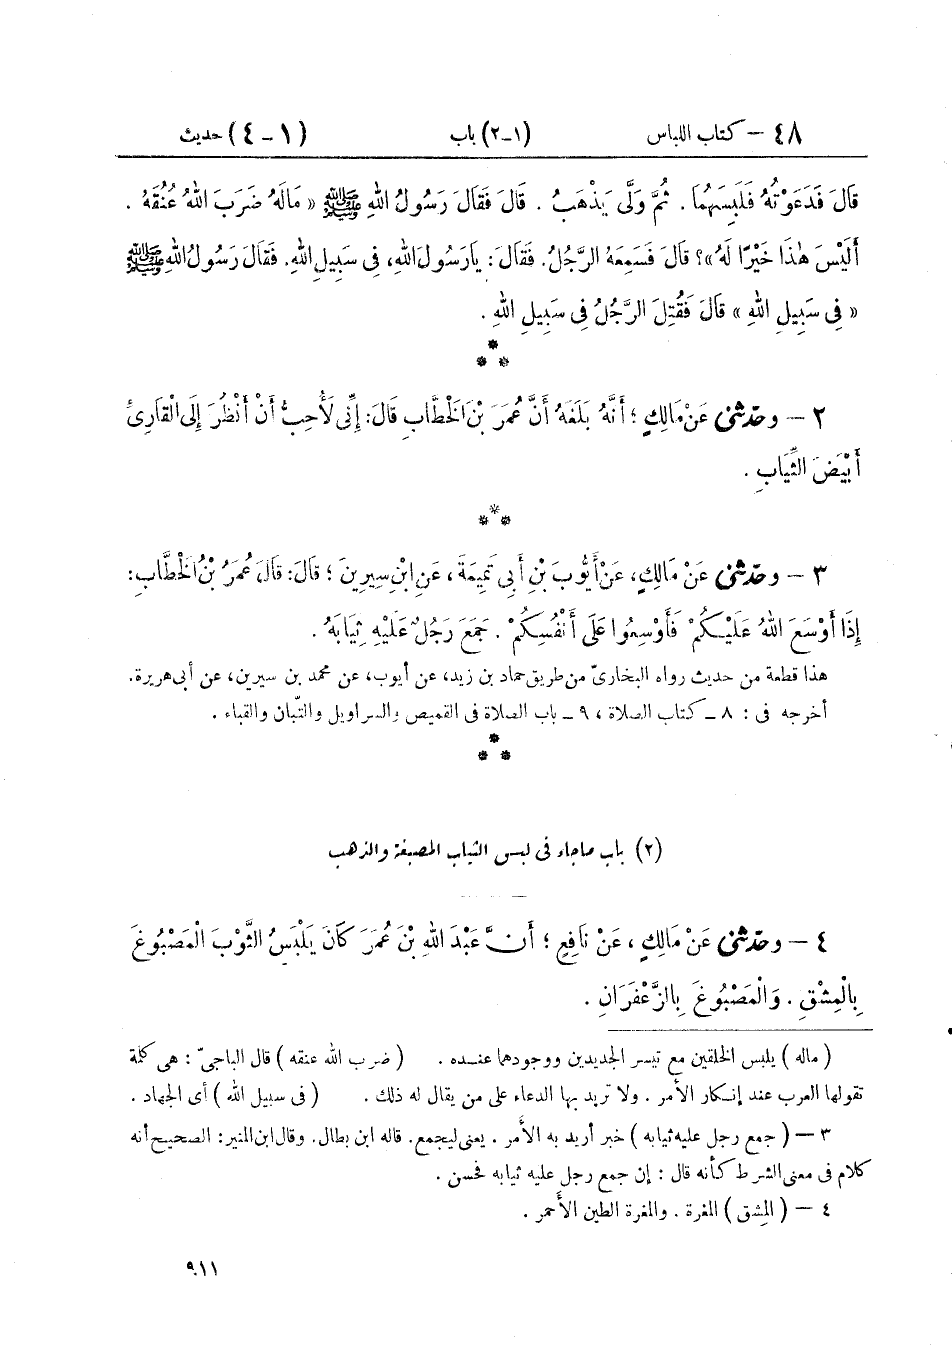 ٤٨ – كتاب اللباس (١-٢) باب (١-٤) حديث
قَالَ فَدَعَوْتُهُ فَلَبِسَهُمَا . ثُمَّ وَلَّى يَذْهَبُ . قَالَ فَقَالَ رَسُولُ اللهِ ﷺ « مَالَهُ ضَرَبَ اللهُ عُنُقَهُ .
أَلَيْسَ هٰذَا خَيْرًا لَهُ»؟ قَالَ فَسَمِعَهُ الرَّجُلُ. فَقَالَ : يارَسُولَ اللهِ، فِى سَبِيلِ اللهِ. فَقَالَ رَسُولُ اللهِ ﷺ
« فِى سَبِيلِ اللهِ » قَالَ فَقُتِلَ الرَّجُلُ فِى سَبِيلِ اللهِ .
*
* *
٢ – وحدّثنى عَنْ مَالِكٍ ؛ أَنَّهُ بَلَغَهُ أَنَّ عُمَرَ بْنَ الْخَطَّابِ قَالَ: إِنِّى لَأُحِبُّ أَنْ أَنْظُرَ إِلَى الْقَارِئِ
أَبْيَضَ الثِّيَابِ .
*
* *
٣ – وحدّثنى عَنْ مَالِكٍ، عَنْ أَيُّوبَ بْنِ أَبِى تَمِيمَةَ ، عَنِ ابْنِ سِيرِينَ ؛ قَالَ: قَالَ عُمَرُ بْنُ الْخَطَّابِ:
إِذَا أَوْسَعَ اللهُ عَلَيْكُمْ فَأَوْسِعُوا عَلَى أَنْفُسِكُمْ . جَمَعَ رَجُلٌ عَلَيْهِ ثِيَابَهُ .
هذا قطعة من حديث رواه البخارىّ من طريق حماد بن زيد، عن أيوب، عن محمد بن سيرين، عن أبى هريرة.
أخرجه فى : ٨ – كتاب الصلاة ، ٩ – باب الصلاة فى القميص والسراويل والتّبان والقباء .
*
* *
(٢) باب ماجاء فى لبس الثياب المصبغة والذهب
٤ – وحدّثنى عَنْ مَالِكٍ ، عَنْ نَافِعٍ ؛ أَنَّ عَبْدَ اللهِ بْنَ عُمَرَ كَانَ يَلْبَسُ الثَّوْبَ الْمَصْبُوغَ
بِالْمِشْقِ . وَالْمَصْبُوغَ بِالزَّعْفَرَانِ .
( ماله ) يلبس الخلقين مع تيسر الجديدين ووجودهما عنده . ( ضرب الله عنقه ) قال الباجىّ : هى كلمة
تقولها العرب عند إنكار الأمر . ولا تريد بها الدعاء على من يقال له ذلك . ( فى سبيل الله ) أى الجهاد .
٣ – ( جمع رجل عليه ثيابه ) خبر أريد به الأمر . يعنى ليجمع. قاله ابن بطال. وقال ابن المنير: الصحيح أنه
كلام فى معنى الشرط كأنه قال : إن جمع رجل عليه ثيابه فحسن .
٤ – ( المِشق ) المغرة . والمغرة الطين الأحمر .
٩١١